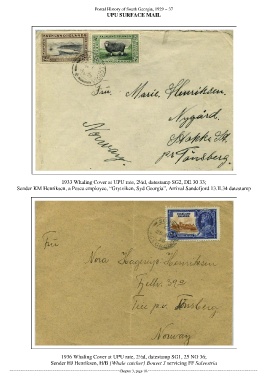 Postal History of South Georgia, 1929 – 37
UPU SURFACE MAIL
Fru Marie Henriksen.
Nygård.
Stokke St.
per Tönsberg.
Norway
1933 Whaling Cover at UPU rate, 2½d, datestamp SG2, DE 30 33;
Sender KM Henriksen, a Pesca employee, "Grytviken, Syd Georgia", Arrival Sandefjord 13.II.34 datestamp
FALKLAND ISLANDS
Fru
Nora
Henriksen
Tjøtta
Tönsberg
Norway
1936 Whaling Cover at UPU rate, 2½d, datestamp SG1, 25 NO 36,
Sender HJ Henriksen, H/B (Whale catcher) Busen 3 servicing FF Salvestria
Chapter 3, page